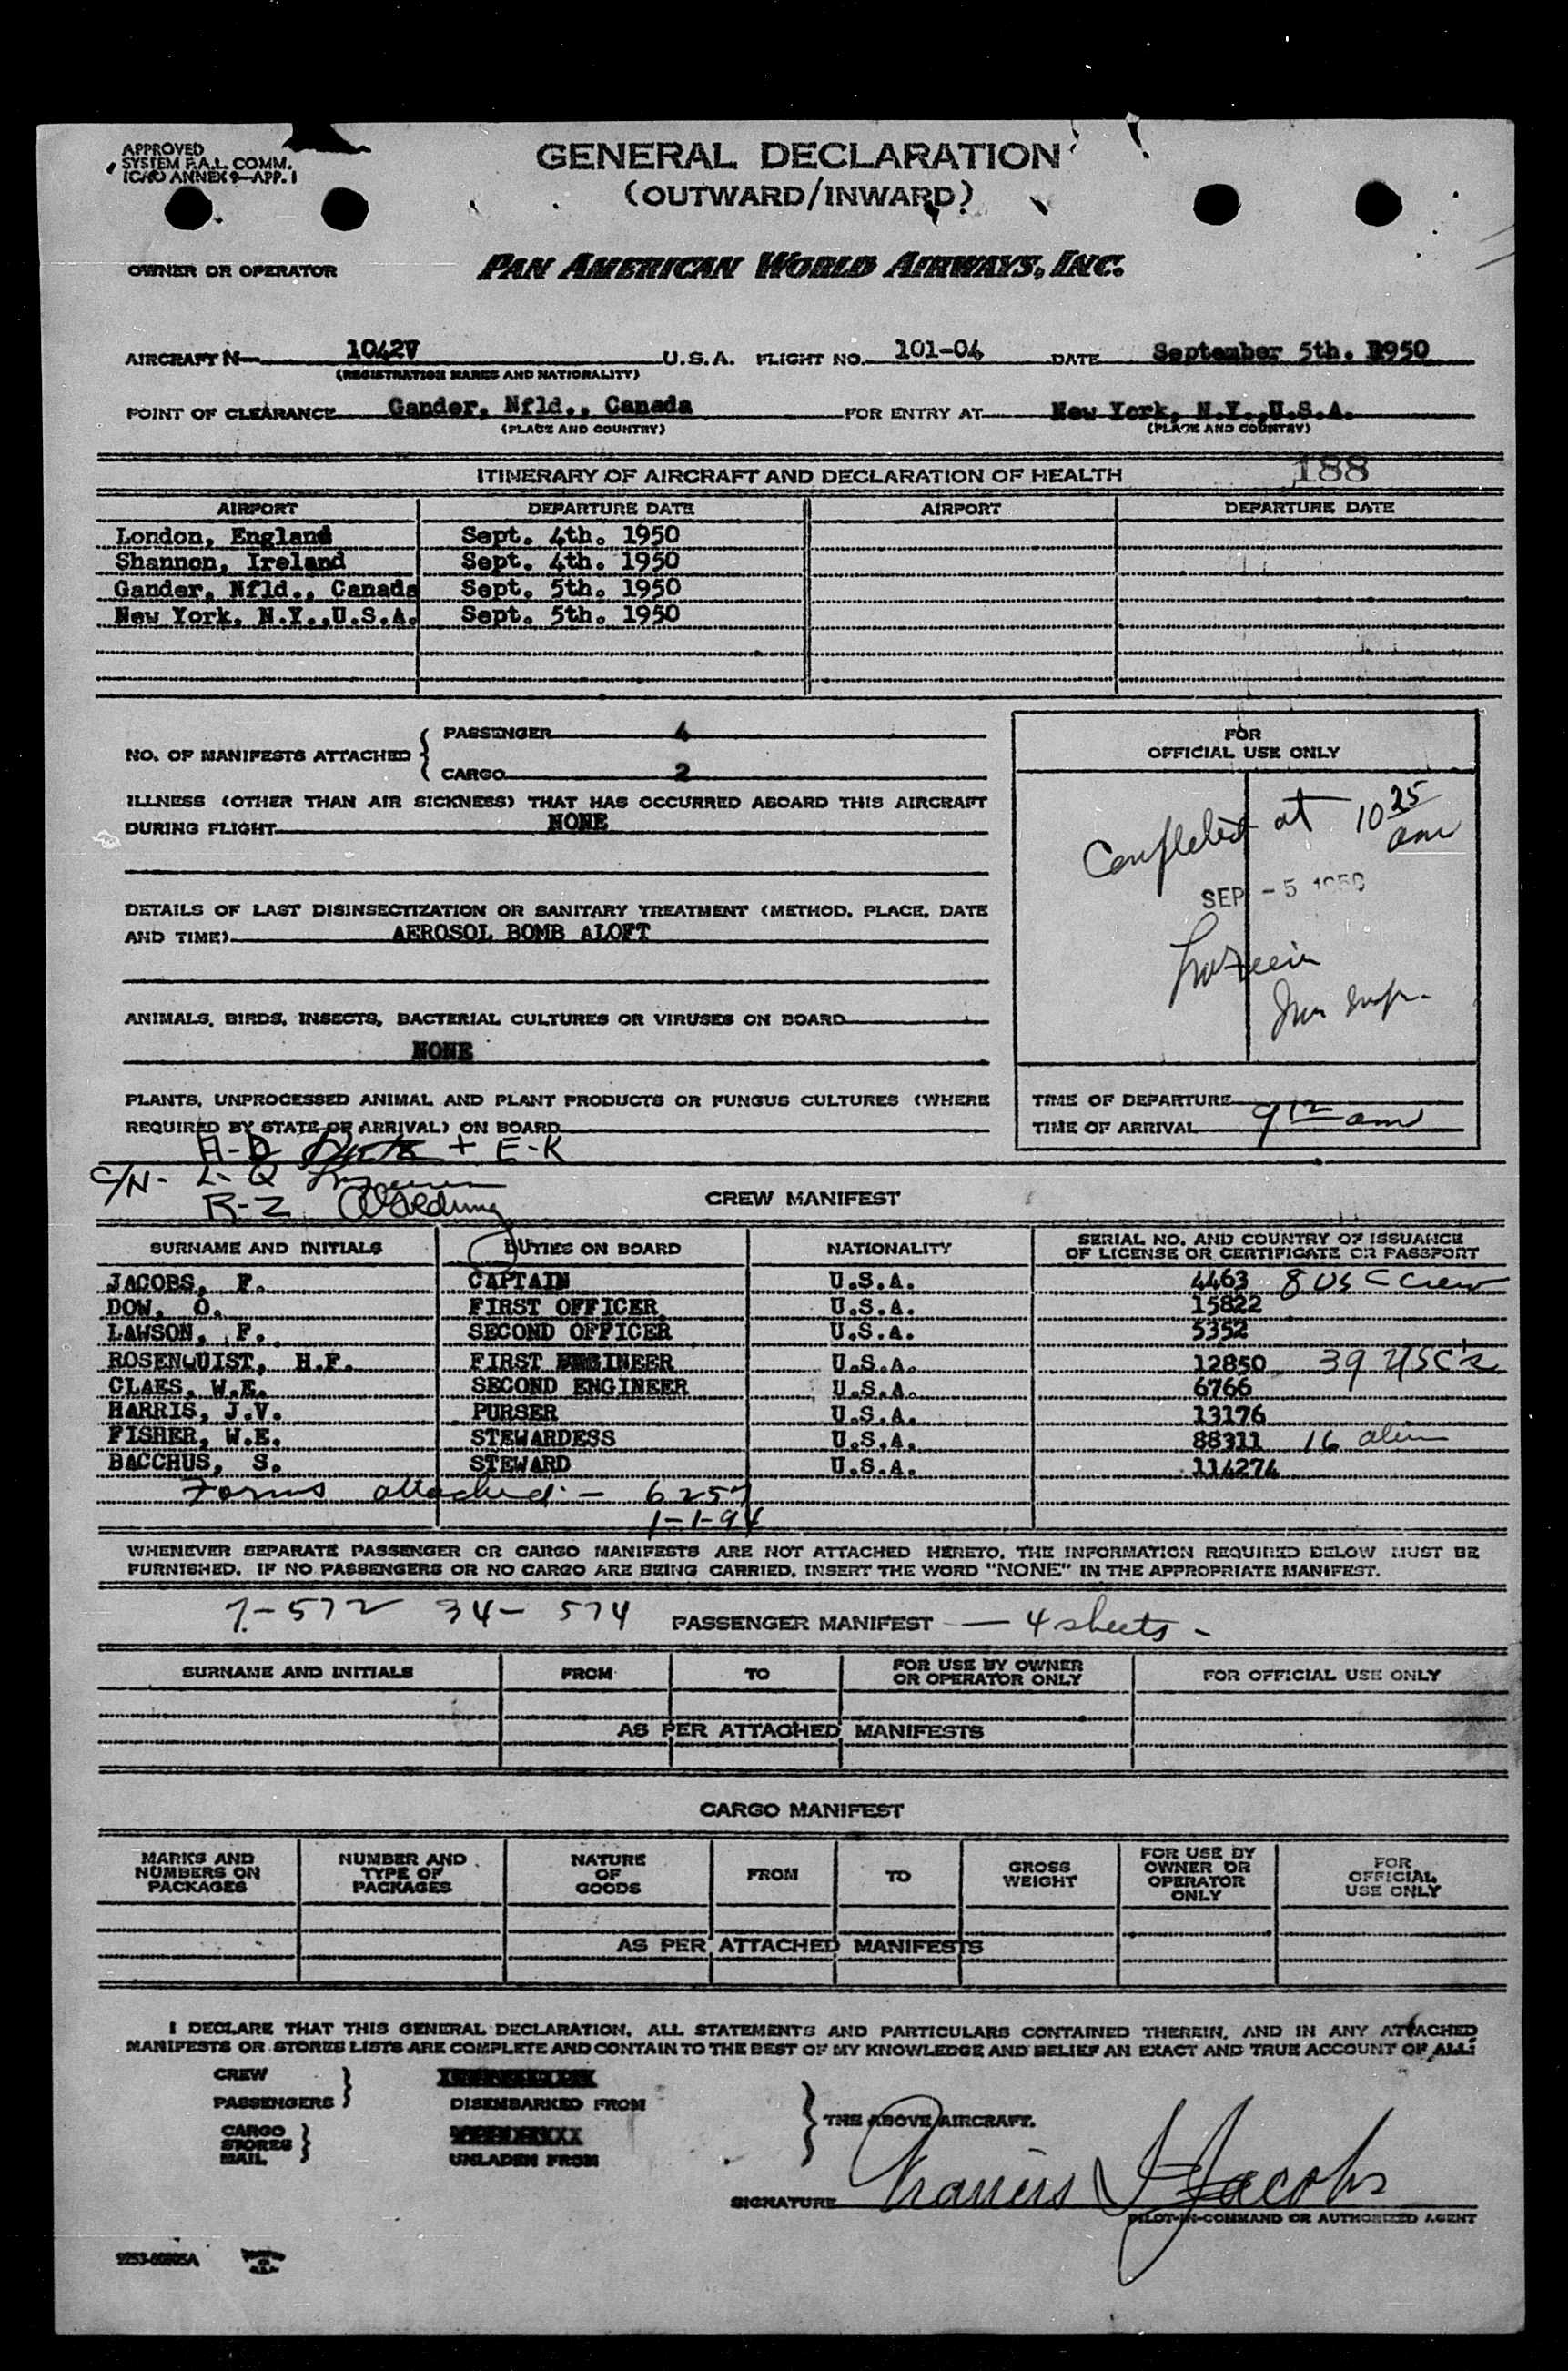 APPROVED
SYSTEM F.A.L. COMM.
ICAO ANNEX 9—APP. I
GENERAL DECLARATION
(OUTWARD/INWARD)
OWNER OR OPERATOR PAN AMERICAN WORLD AIRWAYS, INC.
AIRCRAFT N 1042V U.S.A. FLIGHT NO. 101-04 DATE September 5th. 1950
(REGISTRATION MARKS AND NATIONALITY)
POINT OF CLEARANCE Gander, Nfld., Canada FOR ENTRY AT New York, N.Y.,U.S.A.
(PLACE AND COUNTRY) (PLACE AND COUNTRY)
ITINERARY OF AIRCRAFT AND DECLARATION OF HEALTH 188
AIRPORT DEPARTURE DATE AIRPORT DEPARTURE DATE
London, England Sept. 4th. 1950
Shannon, Ireland Sept. 4th. 1950
Gander, Nfld., Canada Sept. 5th. 1950
New York, N.Y.,U.S.A. Sept. 5th. 1950
NO. OF MANIFESTS ATTACHED { PASSENGER 4
CARGO 2
ILLNESS (OTHER THAN AIR SICKNESS) THAT HAS OCCURRED ABOARD THIS AIRCRAFT
DURING FLIGHT NONE
DETAILS OF LAST DISINSECTIZATION OR SANITARY TREATMENT (METHOD, PLACE, DATE
AND TIME) AEROSOL BOMB ALOFT
ANIMALS, BIRDS, INSECTS, BACTERIAL CULTURES OR VIRUSES ON BOARD
NONE
PLANTS, UNPROCESSED ANIMAL AND PLANT PRODUCTS OR FUNGUS CULTURES (WHERE
REQUIRED BY STATE OF ARRIVAL) ON BOARD
FOR
OFFICIAL USE ONLY
Completed at 10 25 am
SEP - 5 1950
Imm Insp.
TIME OF DEPARTURE
TIME OF ARRIVAL 9 12 am
A-D + E-K
C/N- L-Q
R-Z
CREW MANIFEST
SURNAME AND INITIALS DUTIES ON BOARD NATIONALITY SERIAL NO. AND COUNTRY OF ISSUANCE
OF LICENSE OR CERTIFICATE OR PASSPORT
JACOBS, F. CAPTAIN U.S.A. 4463 8 US C Crew
DOW, O. FIRST OFFICER U.S.A. 15822
LAWSON, F. SECOND OFFICER U.S.A. 5352
ROSENQUIST, H.F. FIRST ENGINEER U.S.A. 12850 39 USC's
CLAES, W.E. SECOND ENGINEER U.S.A. 6766
HARRIS, J.V. PURSER U.S.A. 13176
FISHER, W.E. STEWARDESS U.S.A. 88311 16 alien
BACCHUS, S. STEWARD U.S.A. 114274
Forms attached:- 6257
1-1-94
WHENEVER SEPARATE PASSENGER OR CARGO MANIFESTS ARE NOT ATTACHED HERETO, THE INFORMATION REQUIRED BELOW MUST BE
FURNISHED. IF NO PASSENGERS OR NO CARGO ARE BEING CARRIED, INSERT THE WORD "NONE" IN THE APPROPRIATE MANIFEST.
7-572 34- 574 PASSENGER MANIFEST — 4 sheets -
SURNAME AND INITIALS FROM TO FOR USE BY OWNER
OR OPERATOR ONLY FOR OFFICIAL USE ONLY
AS PER ATTACHED MANIFESTS
CARGO MANIFEST
MARKS AND
NUMBERS ON
PACKAGES NUMBER AND
TYPE OF
PACKAGES NATURE
OF
GOODS FROM TO GROSS
WEIGHT FOR USE BY
OWNER OR
OPERATOR
ONLY FOR
OFFICIAL
USE ONLY
AS PER ATTACHED MANIFESTS
I DECLARE THAT THIS GENERAL DECLARATION, ALL STATEMENTS AND PARTICULARS CONTAINED THEREIN, AND IN ANY ATTACHED
MANIFESTS OR STORES LISTS ARE COMPLETE AND CONTAIN TO THE BEST OF MY KNOWLEDGE AND BELIEF AN EXACT AND TRUE ACCOUNT OF ALL:
CREW
PASSENGERS } DISEMBARKED FROM
CARGO
STORES
MAIL } UNLADEN FROM
} THE ABOVE AIRCRAFT.
SIGNATURE Francis J Jacobs
PILOT-IN-COMMAND OR AUTHORIZED AGENT